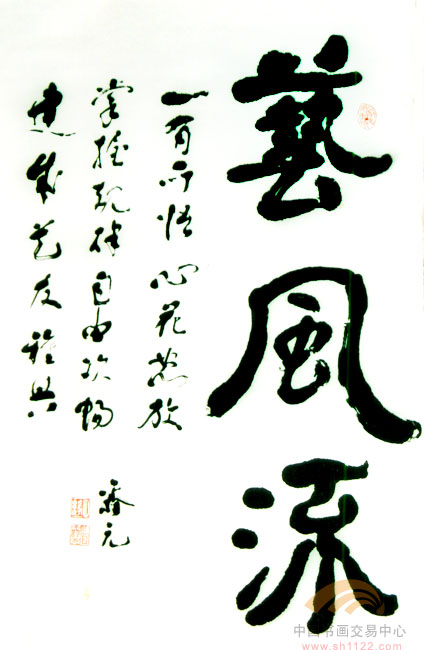 藝風流
一有所悟心花怒放
掌握規律自由欢畅
建成艺友兴
元
中国书画交易中心
www.sh1122.com